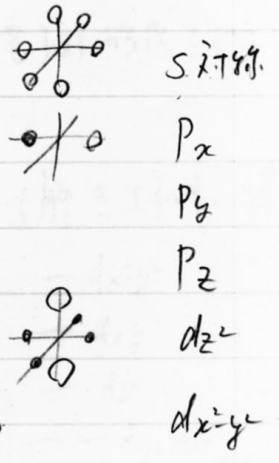 s対称
Px
Py
Pz
dz²
dx²-y²